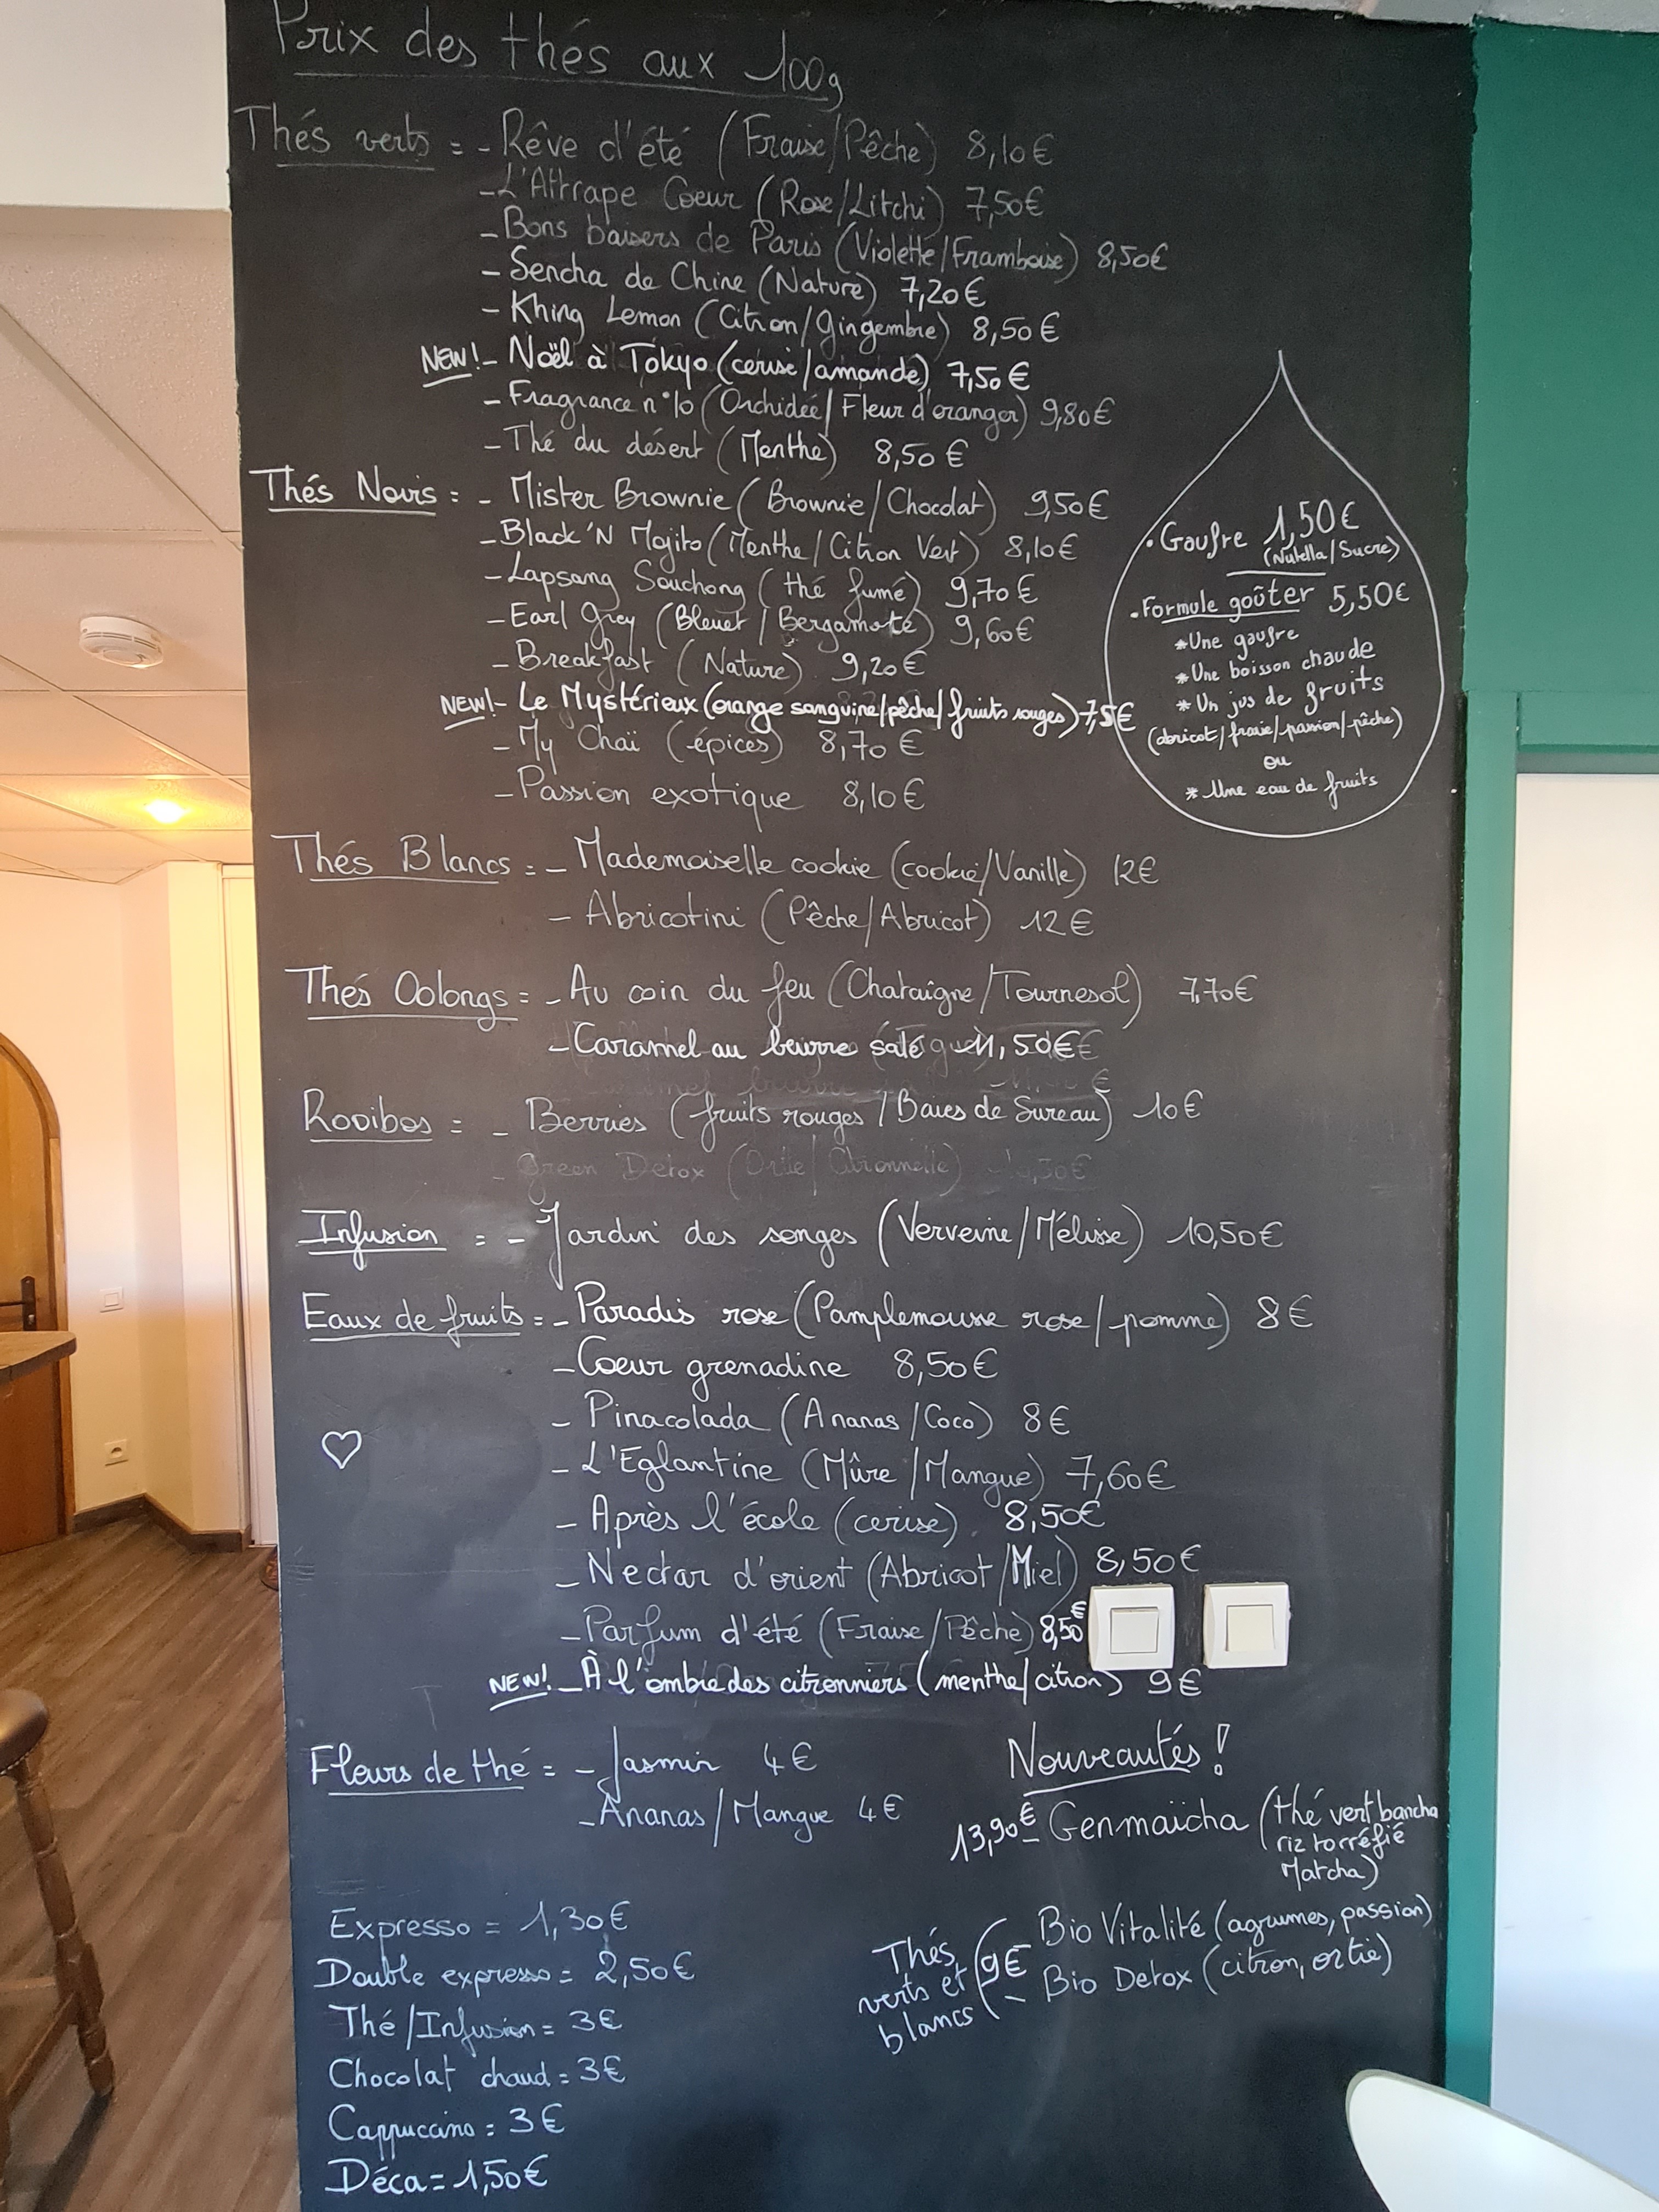 Prix des thés aux 100g
Thés verts = - Rêve d'été (Fraise/Pêche) 8,10€
- L'Attrape Coeur (Rose/Litchi) 7,50€
- Bons baisers de Paris (Violette/Framboise) 8,50€
- Sencha de Chine (Nature) 7,20€
- Khing Lemon (Citron/gingembre) 8,50€
NEW! - Noël à Tokyo (cerise/amande) 7,50€
- Fragrance n°10 (Orchidée/Fleur d'oranger) 9,80€
- Thé du désert (Menthe) 8,50€
Thés Noirs = - Mister Brownie (Brownie/Chocolat) 9,50€
- Black'N Mojito (Menthe/Citron Vert) 8,10€
- Lapsang Souchong (thé fumé) 9,70€
- Earl Grey (Bleuet/Bergamote) 9,60€
- Breakfast (Nature) 9,20€
NEW! - Le Mystérieux (orange sanguine/pêche/fruits rouges) 7,5€
- My Chaï (épices) 8,70€
- Passion exotique 8,10€
Thés Blancs = - Mademoiselle cookie (cookie/Vanille) 12€
- Abricotini (Pêche/Abricot) 12€
Thés Oolongs = - Au coin du feu (Chataigne/Tournesol) 7,70€
- Caramel au beurre salé 11,50€
Rooibos = - Berries (fruits rouges/Baies de Sureau) 10€
- Green Detox
Infusion = - Jardin des songes (Verveine/Mélisse) 10,50€
Eaux de fruits = - Paradis rose (Pamplemousse rose/pomme) 8€
- Coeur grenadine 8,50€
- Pinacolada (Ananas/Coco) 8€
- L'Eglantine (Mûre/Mangue) 7,60€
- Après l'école (cerise) 8,50€
- Nectar d'orient (Abricot/Miel) 8,50€
- Parfum d'été (Fraise/Pêche) 8,50€
NEW! - À l'ombre des citronniers (menthe/citron) 9€
Fleurs de thé = - Jasmin 4€
- Ananas/Mangue 4€
Expresso = 1,30€
Double expresso = 2,50€
Thé/Infusion = 3€
Chocolat chaud = 3€
Cappuccino = 3€
Déca = 1,50€
• Gaufre 1,50€
(Nutella/Sucre)
• Formule goûter 5,50€
* Une gaufre
* Une boisson chaude
* Un jus de fruits
(abricot/fraise/passion/pêche)
ou
* Une eau de fruits
Nouveautés !
13,90€ - Genmaïcha (thé vert bancha
riz torréfié
Matcha)
Thés verts et blancs 9€
- Bio Vitalité (agrumes, passion)
- Bio Detox (citron, ortie)